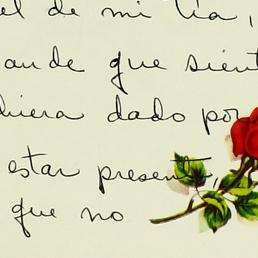 el de mi tía,
ande que sient
biera dado por
estar present,
que no